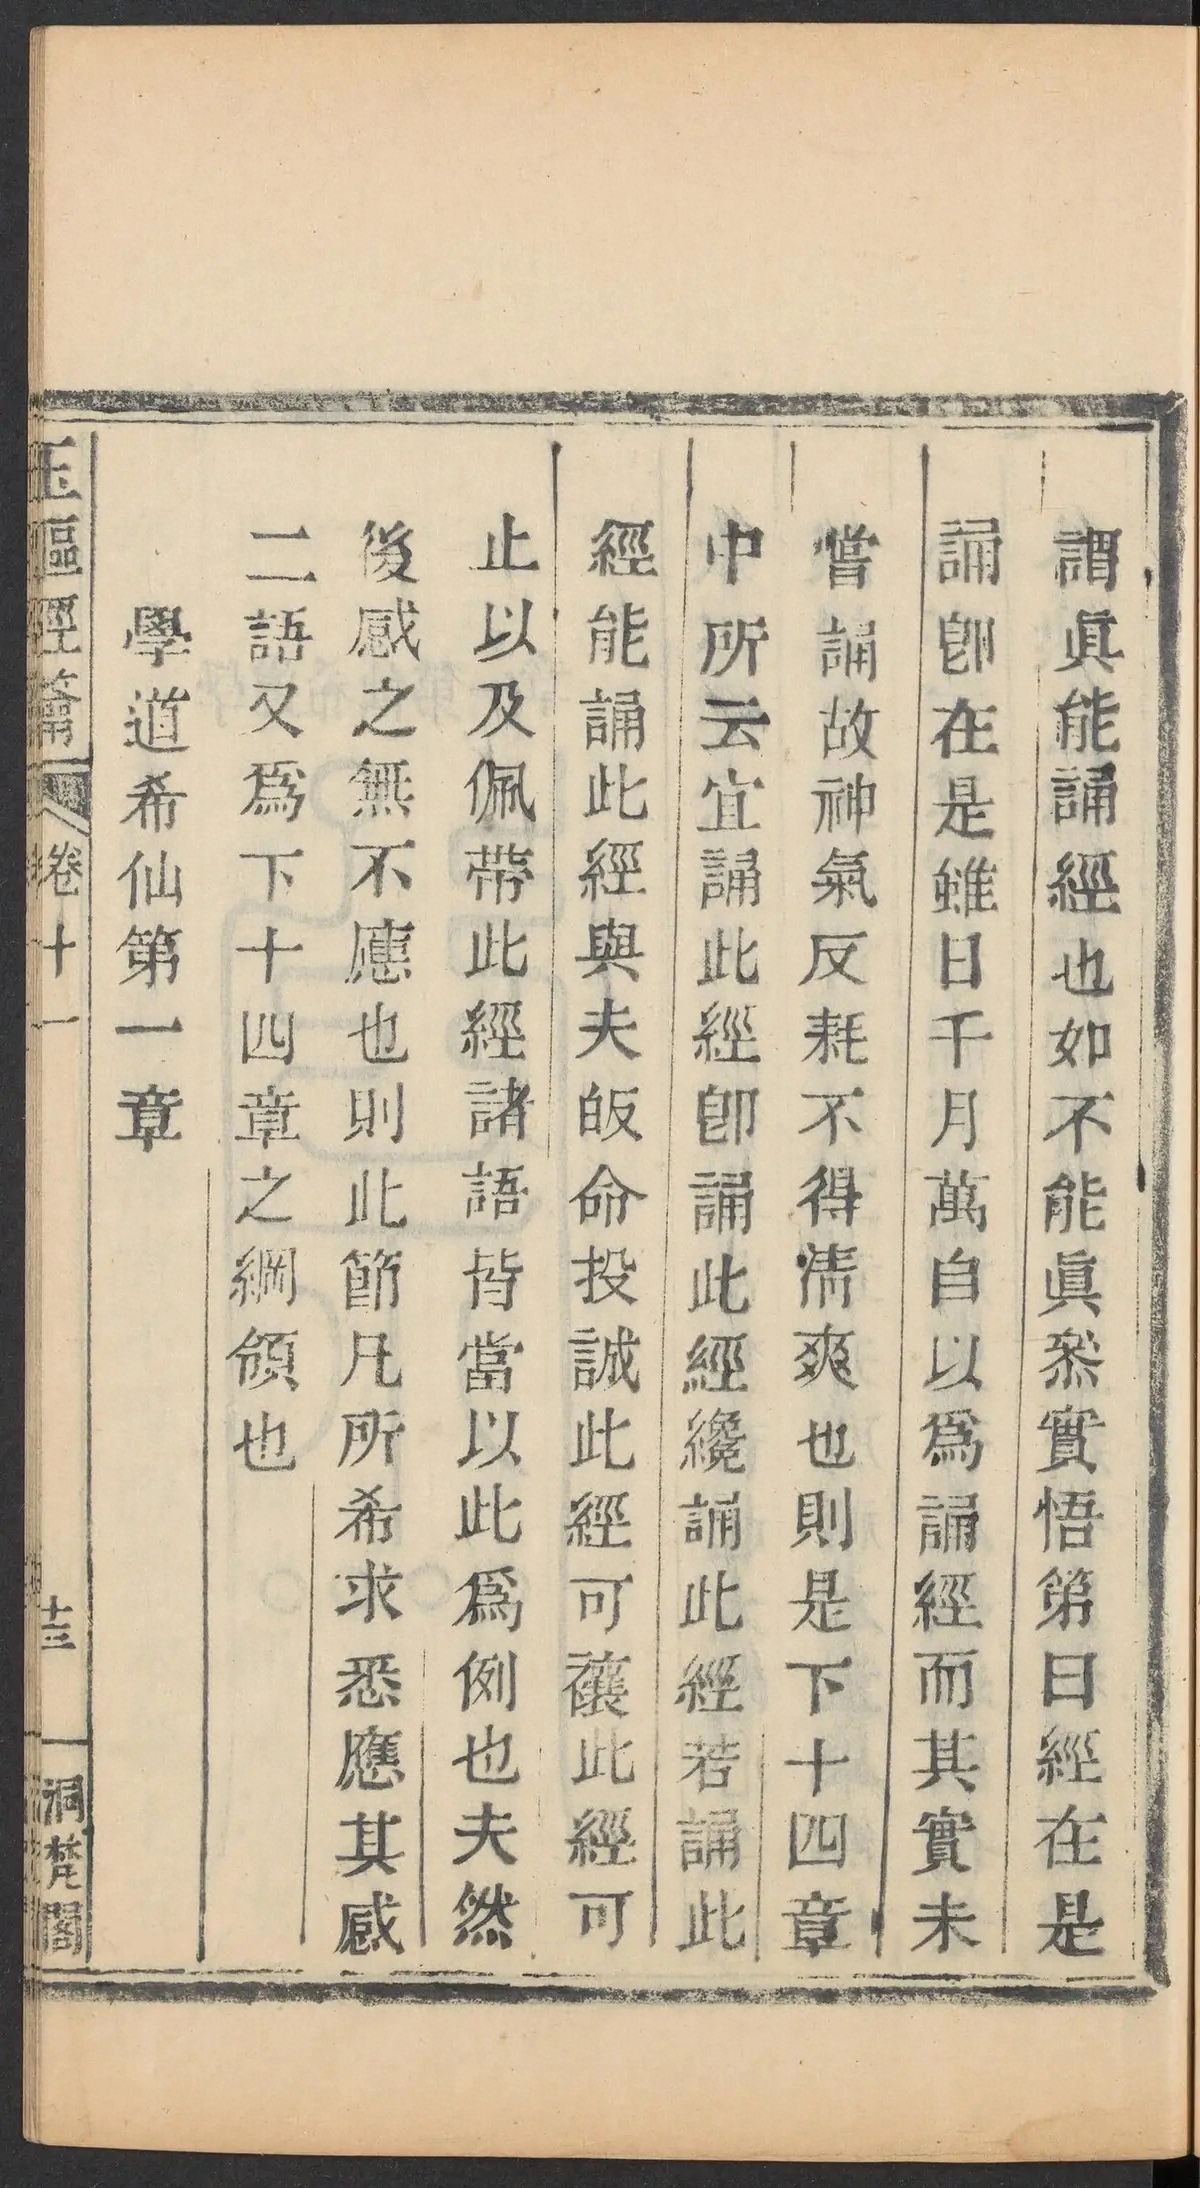 謂眞能誦經也如不能眞叅實悟第曰經在是
誦卽在是雖日千月萬自以爲誦經而其實未
嘗誦故神氣反耗不得淸爽也則是下十四章
中所云宜誦此經卽誦此經纔誦此經若誦此
經能誦此經與夫皈命投誠此經可禳此經可
止以及佩帶此經諸語皆當以此爲例也夫然
後感之無不應也則此節凡所希求悉應其感
二語又爲下十四章之綱領也
學道希仙第一章
玉樞經籥
卷十一
十三
洞梵閣